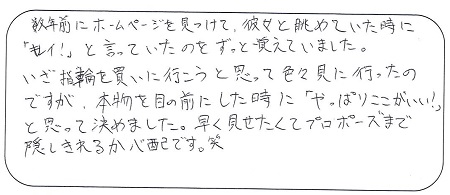 数年前にホームページを見つけて、彼女と眺めていた時に
「カワイイ!」と言っていたのをずっと覚えていました。
いざ指輪を買いに行こうと思って色々見に行ったの
ですが、本物を目の前にした時に「やっぱりここがいい!」
と思って決めました。早く見せたくてプロポーズまで
隠しきれるか心配です。笑